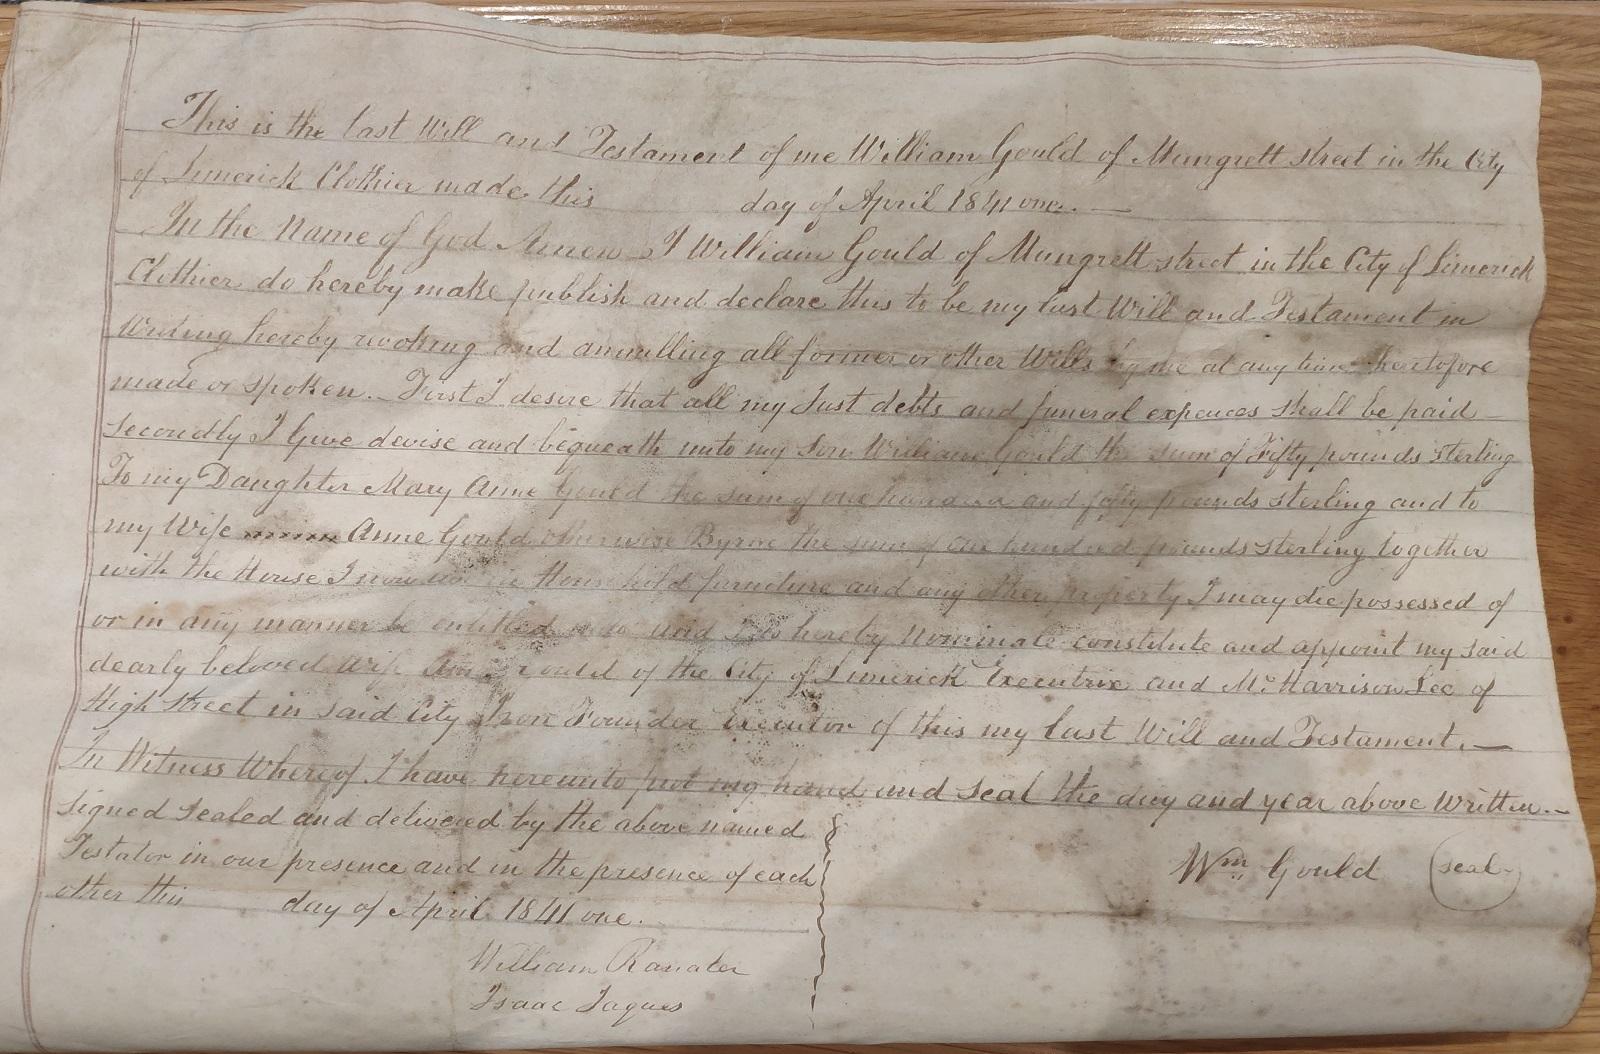 This is the last Will and Testament of me William Gould of Mungrett street in the City
of Limerick Clothier made this day of April 1841 one. —
In the Name of God Amen I William Gould of Mungrett street in the City of Limerick
Clothier do hereby make publish and declare this to be my last Will and Testament in
Writing hereby revoking and annulling all former or other Wills by me at any time heretofore
made or spoken. – First I desire that all my Just debts and funeral expences shall be paid –
secondly I Give devise and bequeath unto my Son William Gould the sum of Fifty pounds sterling
To my Daughter Mary Anne Gould the sum of one hundred and fifty pounds sterling and to
my Wife Anne Gould otherwise Byrne the sum of one hundred pounds sterling together
with the House I now Household furniture and any other property I may die possessed of
or in any manner be entitled unto and I do hereby Nominate constitute and appoint my said
dearly beloved Wife Anne Gould of the City of Limerick Executrix and Mr. Harrison Lee of
High Street in said City Iron Founder Executor of this my last Will and Testament. —
In Witness Whereof I have hereunto put my hand and seal the day and year above Written. —
signed sealed and delivered by the above named
Testator in our presence and in the presence of each
other this day of April 1841 one.
Wm. Gould (seal)
William
Isaac Jaques